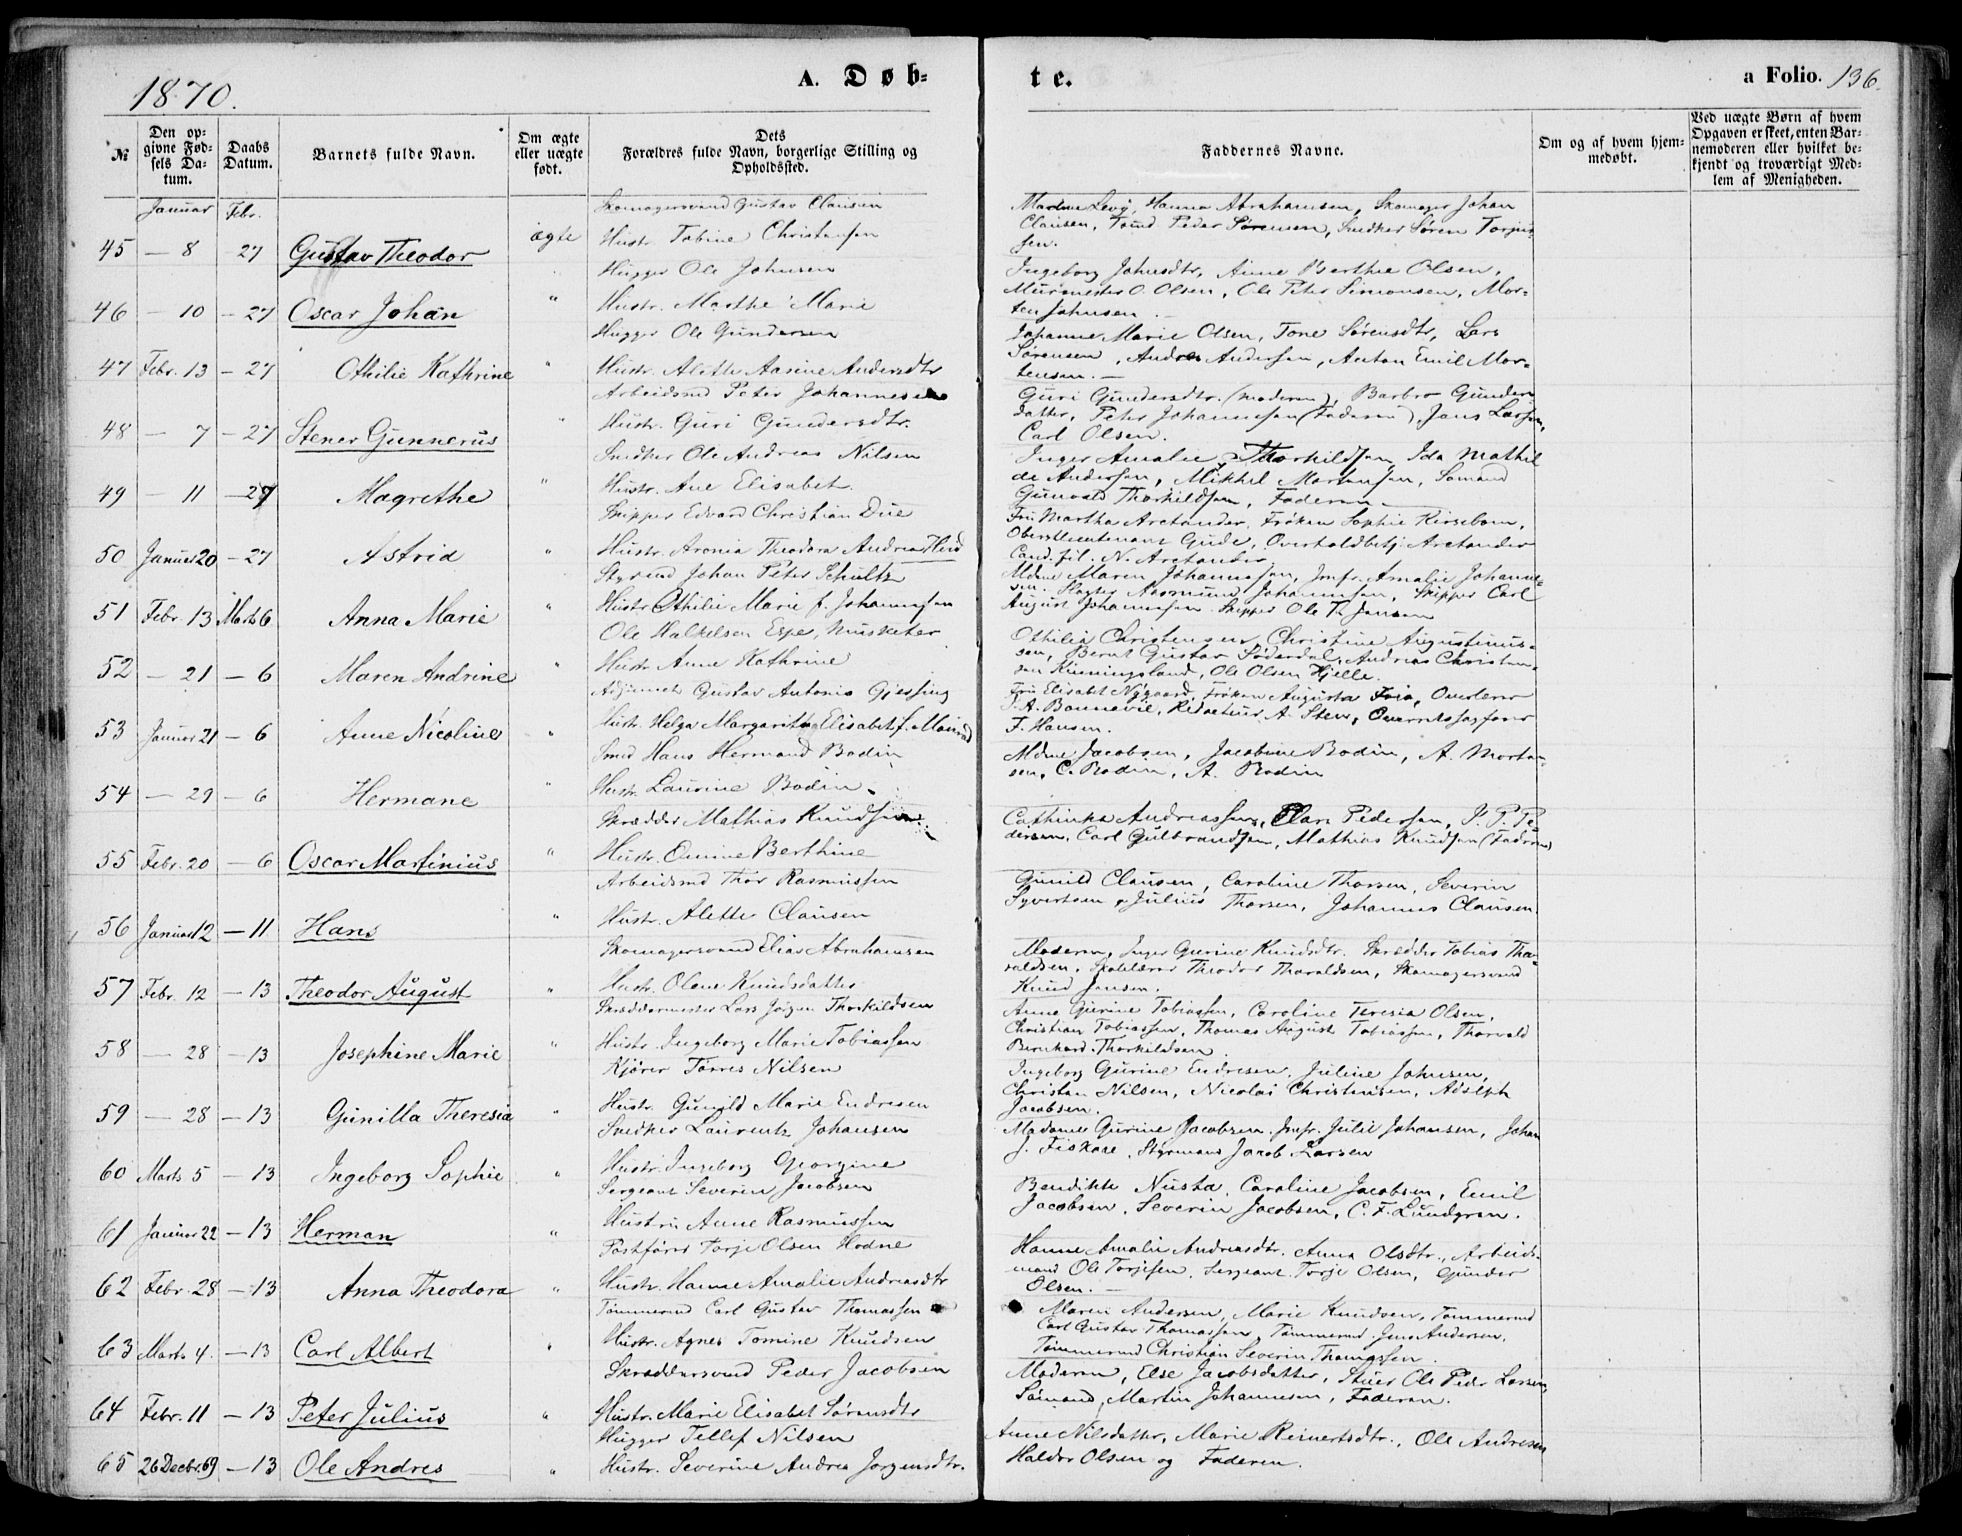 1870.
A. Døb=
te.
a Folio. 136.
№
Den op=
givne Fød=
sels Da=
tum.
Daabs
Datum.
Barnets fulde Navn.
Om ægte
eller uægte
født.
Dets
Forældres fulde Navn, borgerlige Stilling og
Opholdssted.
Faddernes Navne.
Om og af hvem hjem=
medøbt.
Ved uægte Børn af hvem
Opgaven er skeet, enten Bar=
nemoderen eller hvilket be=
kjendt og troværdigt Med=
lem af Menigheden.
Januar Febr.
45 — 8 27 Gustav Theodor ægte
Skomagersvend Gustav Clausen
Hustr. Tobine Christensen
Levy, Hanna Abrahamsen, Skomager Johan
Clausen, Peder Sørensen, Snedker Søren Torjus=
sen.
46 — 10 — 27 Oscar Johan "
Hugger Ole Johnsen
Hustr. Marthe Marie
Ingeborg Johnsdtr, Anne Berthe Olsen,
Murmester O. Olsen, Ole Peter Simonsen, Mor=
ten Johnsen.
47 Febr. 13 — 27 Othilie Kathrine "
Hugger Ole Gundersen
Hustr. Alette Aasine Andersdtr
Johanne Marie Olsen, Tone Sørensdtr, Lars
Sørensen, Andreas Andersen, Anton Emil Mor=
tensen. —
48 — 7 — 27 Stener Gunnerus "
Arbeidsmd Peter Johannesen
Hustr. Guri Gundersdtr.
Guri Gundersdtr. (moderen), Barbro Gunders
datter, Peter Johannesen (Faderen), Jens Larsen,
Carl Olsen.
49 — 11 — 27 Magrethe "
Snedker Ole Andreas Nilsen
Hustr. Ane Elisabet.
Inger Amalie Thorkildsen, Ida Mathil
de Andersen, Mikkel Mortensen, Sømand
Gunvald Thorkildsen, Faderen —
50 Januar 20 — 27 Astrid "
Skipper Edvard Christian Due
Hustr. Aronia Theodora Andrea Hind
Fru Martha Arctander, Frøken Sophie Kirsebom,
Oberstlieutenant Gude, Overtoldbetj. Arctander
Cand. fil. N. Arctander.
51 Febr. 13 Marts 6 Anna Marie "
Styrmd Johan Peter Schultz
Hustr. Othilie Marie f. Johannessen
Mdme Maren Johannessen, Jmfr. Amalie Johannes=
sen. Slagter Rasmund Johannesen, Skipper Carl
August Johannessen Skipper Ole T. Jensen
52 — 21 — 6 Maren Andrine "
Ole Halkelsen Espe, Musketer
Hustr. Anne Kathrine
Othilia Christensen, Christine Augustinus=
sen, Bernt Gustav Søderdal, Andreas Christen=
sen Kinningsland, Ole Olsen Hjelle.
53 Januar 21 — 6 Anne Nicoline "
Adjunct Gustav Antonio Gjessing
Hustr. Helga Margaretha Elisabet f.
Fru Elisabet Nygaard, Frøken Augusta Friis, Overlærer
J. A. Bonnevie, Redacteur A. Steen, Overretssagfører
F. Hansen.
54 — 29 — 6 Hermane "
Smed Hans Hermand Bodin
Hustr. Laurine Bodin.
Mdme Jacobsen, Jacobine Bodin, A. Morten=
sen, C. Bodin, A. Bodin
55 Febr. 20 — 6 Oscar Martinius "
Skrædder Mathias Knudsen
Hustr. Berthine
Cathinka Andreassen, Pedersen, P. Pe=
dersen, Carl Gulbrandsen, Mathias Knudsen (Faderen)
56 Januar 12 — 11 Hans "
Arbeidsmd Thor Rasmussen
Hustr. Alette Clausen
Gunild Clausen, Caroline Thorsen, Severin
Syvertsen, Julius Thorsen, Johannes Clausen.
57 Febr. 12 — 13 Theodor August "
Skomagersvend Elias Abrahamsen
Hustr. Olene Knudsdatter
Moderen, Inger Gurine Knudsdtr. Skrædder Tobias Tho=
raldsen, Skolelærer Theodor Thoraldsen, Skomagersvend
Knud Jensen.
58 — 28 — 13 Josephine Marie "
Skræddermester Lars Jørgen Thorkildsen
Hustr. Ingeborg Marie Tobiassen
Anne Gurine Tobiassen, Caroline Teresia Olsen,
Christian Tobiassen, Thomas August Tobiassen, Thorvald
Bernhard Thorkildsen.
59 — 28 — 13 Gunilla Theresia "
Kjører Tørres Nilsen
Hustr. Gunild Marie Endresen
Ingeborg Gurine Endresen, Juline Johnsen,
Christen Nilsen, Nicolai Christensen, Adolph
Jacobsen.
60 Marts 5 — 13 Ingeborg Sophie "
Snedker Laurentz Johansen
Hustr. Ingeborg Georgine
Madame Gurine Jacobsen. Jmfr. Julie Johansen, Johan
J. Fiskaae, Styrmand Jacob Larsen
61 Januar 22 — 13 Herman "
Sergeant Severin Jacobsen
Hustru Anne Rasmussen
Bendikte Nusta, Caroline Jacobsen, Emil
Jacobsen, Severin Jacobsen, C. F. Lundgren.
62 Febr. 28 — 13 Anna Theodora "
Postfører Torje Olsen Hodne
Hustr. Hanne Amalie Andreasdtr
Hanne Amalie Andreasdtr. Anna Olsdtr., Arbeids=
mand Ole Torjesen, Sergeant Torje Olsen, Gunder
Olsen. —
63 Marts 4. — 13 Carl Albert "
Tømmermd Carl Gustav Thomassen
Hustr. Agnes Tomine Knudsen
Maren Andersen, Marie Knudsen, Tømmermd
Carl Gustav Thomassen, Tømmermd Jens Andersen,
Tømmermd Christian Severin Thomassen.
64 Febr. 11 — 13 Peter Julius "
Skræddersvend Peder Jacobsen
Hustr. Marie Elisabet Sørensdtr
Moderen, Else Jacobsdatter, Stuer Ole Peder Larsen,
Sømand Martin Johannesen, Faderen.
65 26 Decbr. 69 — 13 Ole Andres "
Hugger Tellef Nilsen
Hustr. Severine Andrea Jørgensdtr.
Anne Nilsdatter, Marie Reinertsdtr., Ole Andresen
Haldor Olsen og Faderen.